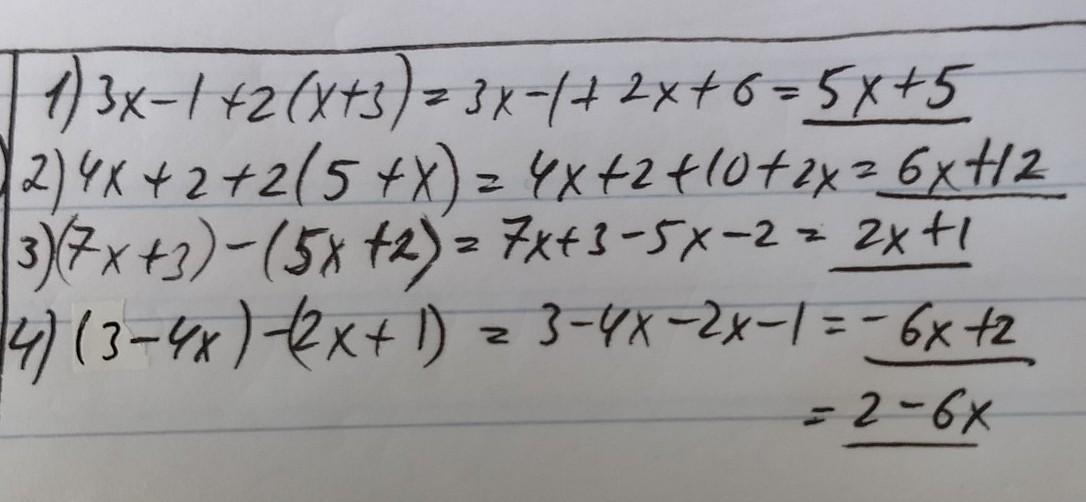 1) 3x-1+2(x+3) = 3x-1+2x+6 = 5x+5
2) 4x+2+2(5+x) = 4x+2+10+2x = 6x+12
3) (7x+3)-(5x+2) = 7x+3-5x-2 = 2x+1
4) (3-4x)-(2x+1) = 3-4x-2x-1 = -6x+2
= 2-6x